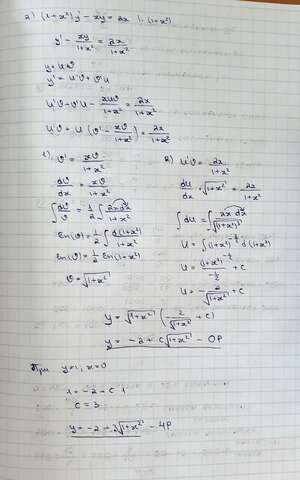 2) (1+x²)y' - xy = 2x |: (1+x²)
y' - xy/(1+x²) = 2x/(1+x²)
y = u·v
y' = u'v + v'u
u'v + v'u - xuv/(1+x²) = 2x/(1+x²)
u'v + u(v' - xv/(1+x²)) = 2x/(1+x²)
1) v' = xv/(1+x²)
dv/dx = xv/(1+x²)
∫ dv/v = 1/2 ∫ 2x dx/(1+x²)
ln(v) = 1/2 ∫ d(1+x²)/(1+x²)
ln(v) = 1/2 ln(1+x²)
v = √(1+x²)
2) u'v = 2x/(1+x²)
du/dx · √(1+x²) = 2x/(1+x²)
∫ du = ∫ 2x dx/√(1+x²)³
u = ∫ (1+x²)^(-3/2) d(1+x²)
u = (1+x²)^(-1/2)/(-1/2) + c
u = - 2/√(1+x²) + c
y = √(1+x²) (- 2/√(1+x²) + c)
y = -2 + c√(1+x²) - ОР
При y=1, x=0
1 = -2 + c · 1
c = 3
y = -2 + 3√(1+x²) - ЧР